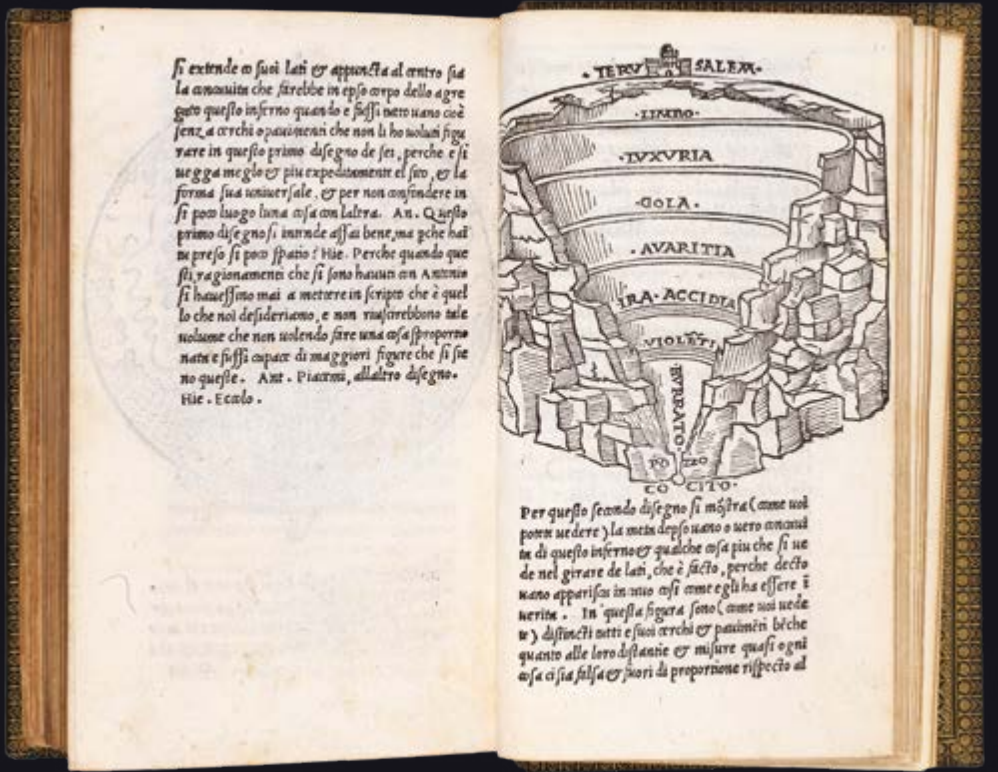 si extende co suoi lati & appuncta al centro sia
la concauita che sarebbe in epso corpo dello agre
gato questo inferno quando e fussi neto uano cioè
senza cerchi o pauimenti che non li ho uoluti figu
rare in questo primo disegno de sei, perche e si
uegga meglo & piu expeditamente el sito, & la
forma sua uniuersale, & per non confondere in
si poco luogo luna cosa con laltra. An. Questo
primo disegno si intende assai bene, ma pche hai
tu preso si poco spatio? Hie. Perche quando que
sti ragionamenti che si sono hauuti con Antonio
si hauessino mai a mettere in scripto che è quel
lo che noi desideriamo, e non riuscirebbono tale
uolume che non uolendo fare una cosa sproportio
nata e fussi capace di maggiori figure che si sie
no queste. Ant. Piacemi, allaltro disegno.
Hie. Eccolo.
·IERV SALEM·
·LIMBO·
·LVXVRIA
·GOLA·
·AVARITIA
IRA·ACCIDIA
·VIOLETI
BVRRATO
PO ZZO
CO CITO·
Per questo secondo disegno si mostra (come uoi
potete uedere) la meta depso uano o uero concaui
ta di questo inferno & qualche cosa piu che si ue
de nel girare de lati, che è facto, perche decto
uano apparisca in uno cosi come egli ha essere ī
uerita. In questa figura sono (come uoi uede
te) distincti tutti e suoi cerchi & pauimēti bēche
quanto alle loro distantie & misure quasi ogni
cosa ci sia falsa & fuori di proportione rispecto al